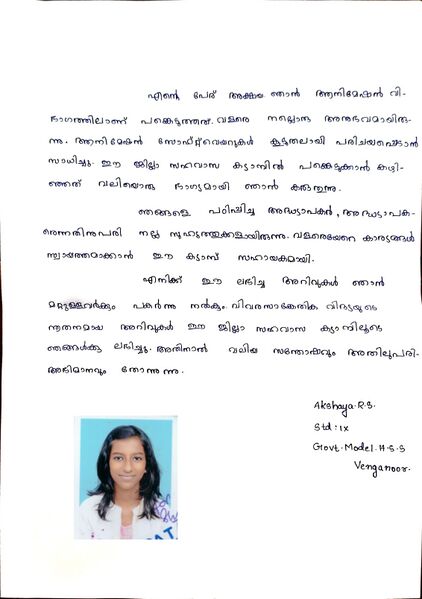 എന്റെ പേര് അക്ഷയ ഞാൻ ആനിമേഷൻ വി-
ഭാഗത്തിലാണ് പങ്കെടുത്തത്. വളരെ നല്ലൊരു അനുഭവമായിരു-
ന്നു. ആനിമേഷൻ സോഫ്റ്റ്‌വെയറുകൾ കൂടുതലായി പരിചയപ്പെടാൻ
സാധിച്ചു. ഈ ജില്ലാ സഹവാസ ക്യാമ്പിൽ പങ്കെടുക്കാൻ കഴി-
ഞ്ഞത് വലിയൊരു ഭാഗ്യമായി ഞാൻ കരുതുന്നു.
ഞങ്ങളെ പഠിപ്പിച്ച അദ്ധ്യാപകർ, അദ്ധ്യാപക-
രെന്നതിനുപരി നല്ല സുഹൃത്തുക്കളായിരുന്നു. വളരെയേറെ കാര്യങ്ങൾ
സ്വായത്തമാക്കാൻ ഈ ക്യാമ്പ് സഹായകമായി.
എനിക്ക് ഈ ലഭിച്ച അറിവുകൾ ഞാൻ
മറ്റുള്ളവർക്കും പകർന്നു നൽകും. വിവരസാങ്കേതിക വിദ്യയുടെ
നൂതനമായ അറിവുകൾ ഈ ജില്ലാ സഹവാസ ക്യാമ്പിലൂടെ
ഞങ്ങൾക്കു ലഭിച്ചു. അതിനാൽ വലിയ സന്തോഷവും അതിലുപരി-
അഭിമാനവും തോന്നുന്നു.
Akshaya.R.S.
Std: IX
Govt. Model. H.S.S
Venganoor.